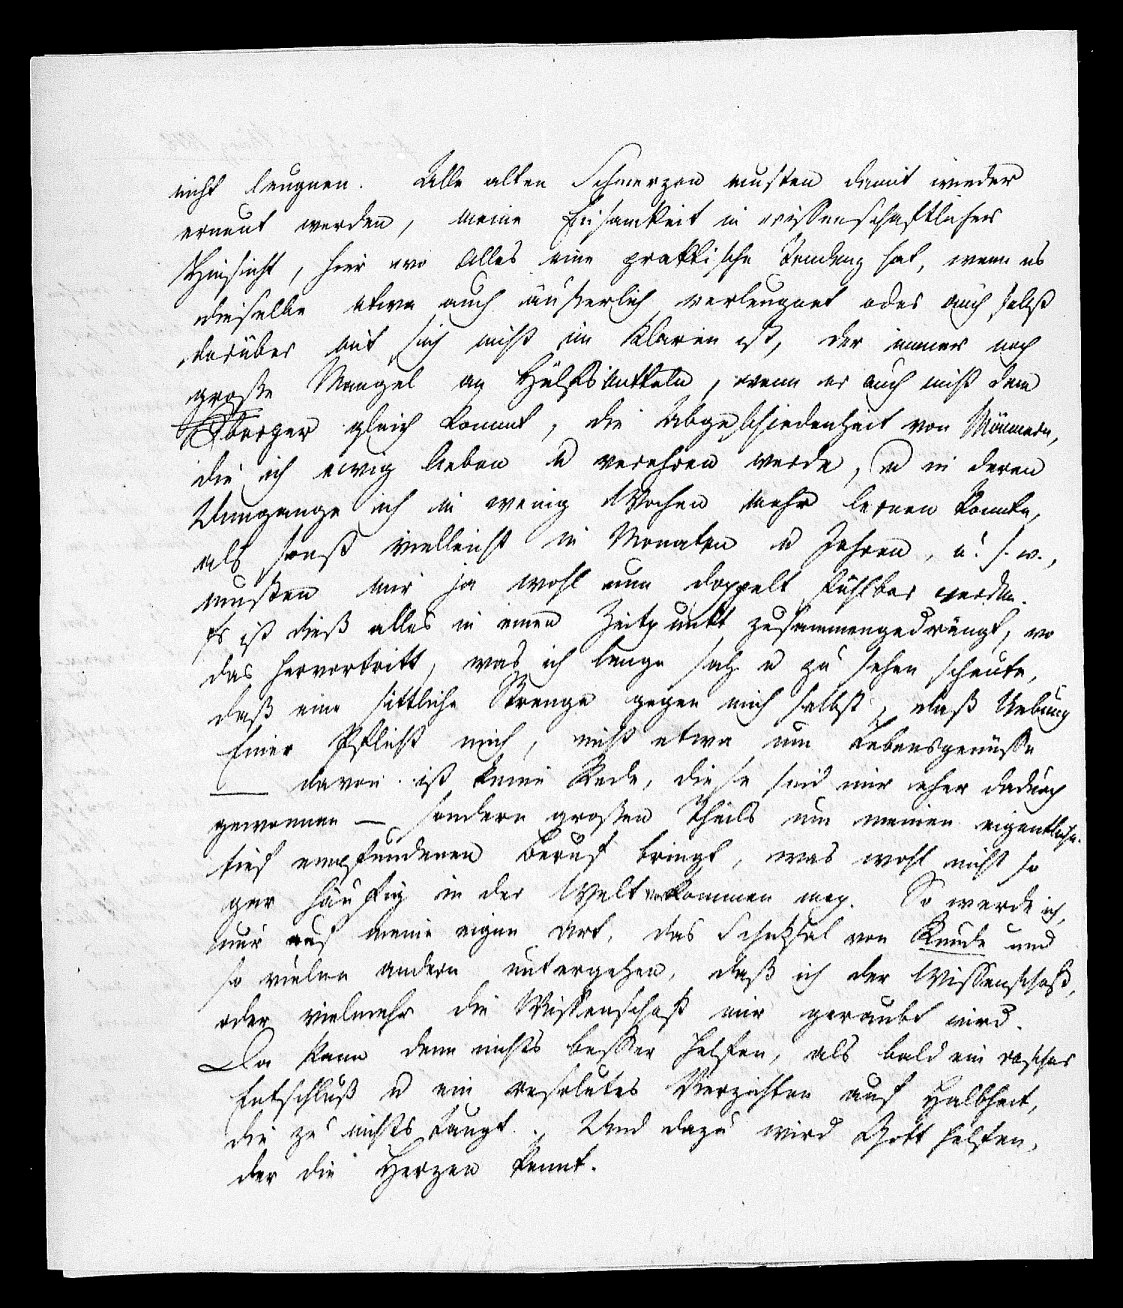 nicht leugnen. Alle alten Schmerzen musten damit wieder
erneut werden, meine Einsamkeit in wissenschaftlicher
Hinsicht, hier wo Alles eine praktische Tendenz hat, wenn es
dieselbe etwa auch äußerlich verleugnet oder auch selbst
darüber mit sich nicht im Klaren ist, der immer noch
große Mangel an Hülfsmitteln, wenn er auch nicht dem
gleich kommt, die Abgeschiedenheit von Männern,
die ich ewig lieben u verehren werde, u in deren
Umgange ich in wenig Wochen mehr lernen konnte,
als sonst vielleicht in Monaten u Jahren, u. s. w.,
mußten mir ja wohl nun doppelt fühlbar werden.
Es ist dieß alles in einen Zeitpunkt zusammengedrängt, wo
das hervortritt, was ich lange sah u zu sehen scheute,
daß eine sittliche Strenge gegen mich selbst, daß Uebung
Einer Pflicht mich, nicht etwa um Lebensgenüsse
— davon ist keine Rede, diese sind mir eher dadurch
gewonnen — sondern großen Theils um meinen eigentlichen
tief empfundenen Beruf bringt, was wohl nicht so
gar häufig in der Welt vorkommen mag. So werde ich,
nur auf meine eigne Art, das Schicksal von und
so vielen andern untergehen, daß ich der Wissenschaft,
oder vielmehr die Wissenschaft mir geraubt wird.
Da kann denn nichts besser helfen, als bald ein rascher
Entschluß u ein resolutes Verzichten auf Halbheit,
die zu nichts taugt. Und dazu wird Gott helfen,
der die Herzen kennt.